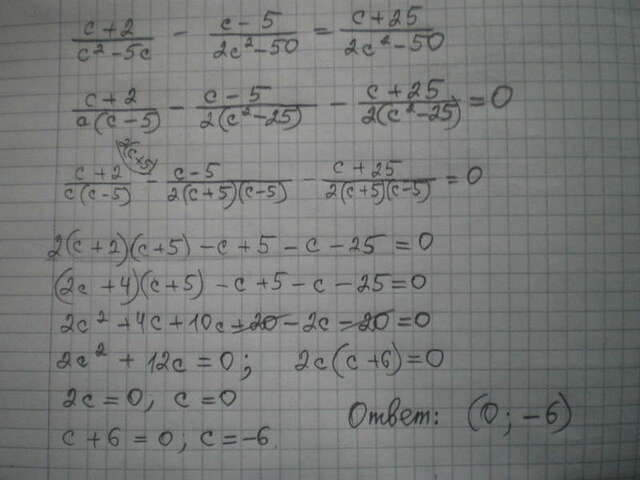 (c+2)/(c²-5c) - (c-5)/(2c²-50) = (c+25)/(2c²-50)
(c+2)/(c(c-5)) - (c-5)/(2(c²-25)) - (c+25)/(2(c²-25)) = 0
2(c+5)
(c+2)/(c(c-5)) - (c-5)/(2(c+5)(c-5)) - (c+25)/(2(c+5)(c-5)) = 0
2(c+2)(c+5) - c + 5 - c - 25 = 0
(2c+4)(c+5) - c + 5 - c - 25 = 0
2c² + 4c + 10c + 20 - 2c - 20 = 0
2c² + 12c = 0; 2c(c+6) = 0
2c = 0, c = 0
c + 6 = 0; c = -6.
Ответ: (0; -6)